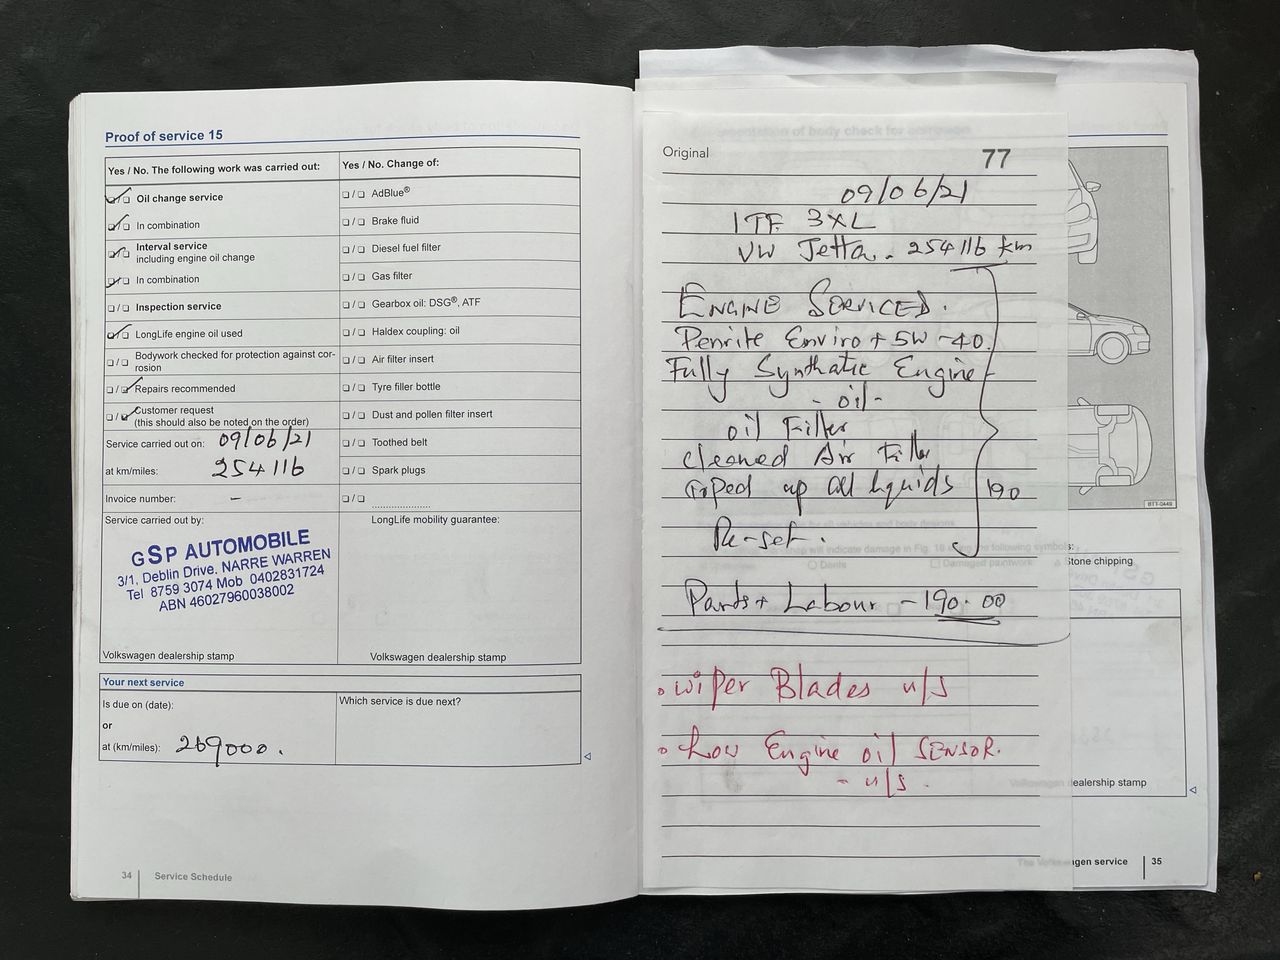 Proof of service 15
Yes / No. The following work was carried out:
Oil change service
In combination
Interval service
including engine oil change
In combination
Inspection service
LongLife engine oil used
Bodywork checked for protection against cor-
rosion
Repairs recommended
Customer request
(this should also be noted on the order)
Service carried out on: 09/06/21
at km/miles: 254116
Invoice number: -
Service carried out by:
GSP AUTOMOBILE
3/1, Deblin Drive. NARRE WARREN
Tel 8759 3074 Mob 0402831724
ABN 46027960038002
Volkswagen dealership stamp
Yes / No. Change of:
AdBlue®
Brake fluid
Diesel fuel filter
Gas filter
Gearbox oil: DSG®, ATF
Haldex coupling: oil
Air filter insert
Tyre filler bottle
Dust and pollen filter insert
Toothed belt
Spark plugs
LongLife mobility guarantee:
Volkswagen dealership stamp
Your next service
Is due on (date):
or
at (km/miles): 269000.
Which service is due next?
34 Service Schedule
Original 77
09/06/21
1TF 3XL
VW Jetta. 254116 km
ENGINE SERVICED.
Penrite Enviro + 5W-40.
Fully Synthetic Engine
- oil -
oil Filter
cleaned Air Filter
Toped up all liquids 190
Re-set.
Parts + Labour - 190.00
• Wiper Blades u/s
• Low Engine oil SENSOR.
- u/s.
BTT-0449
Stone chipping
ealership stamp
gen service 35